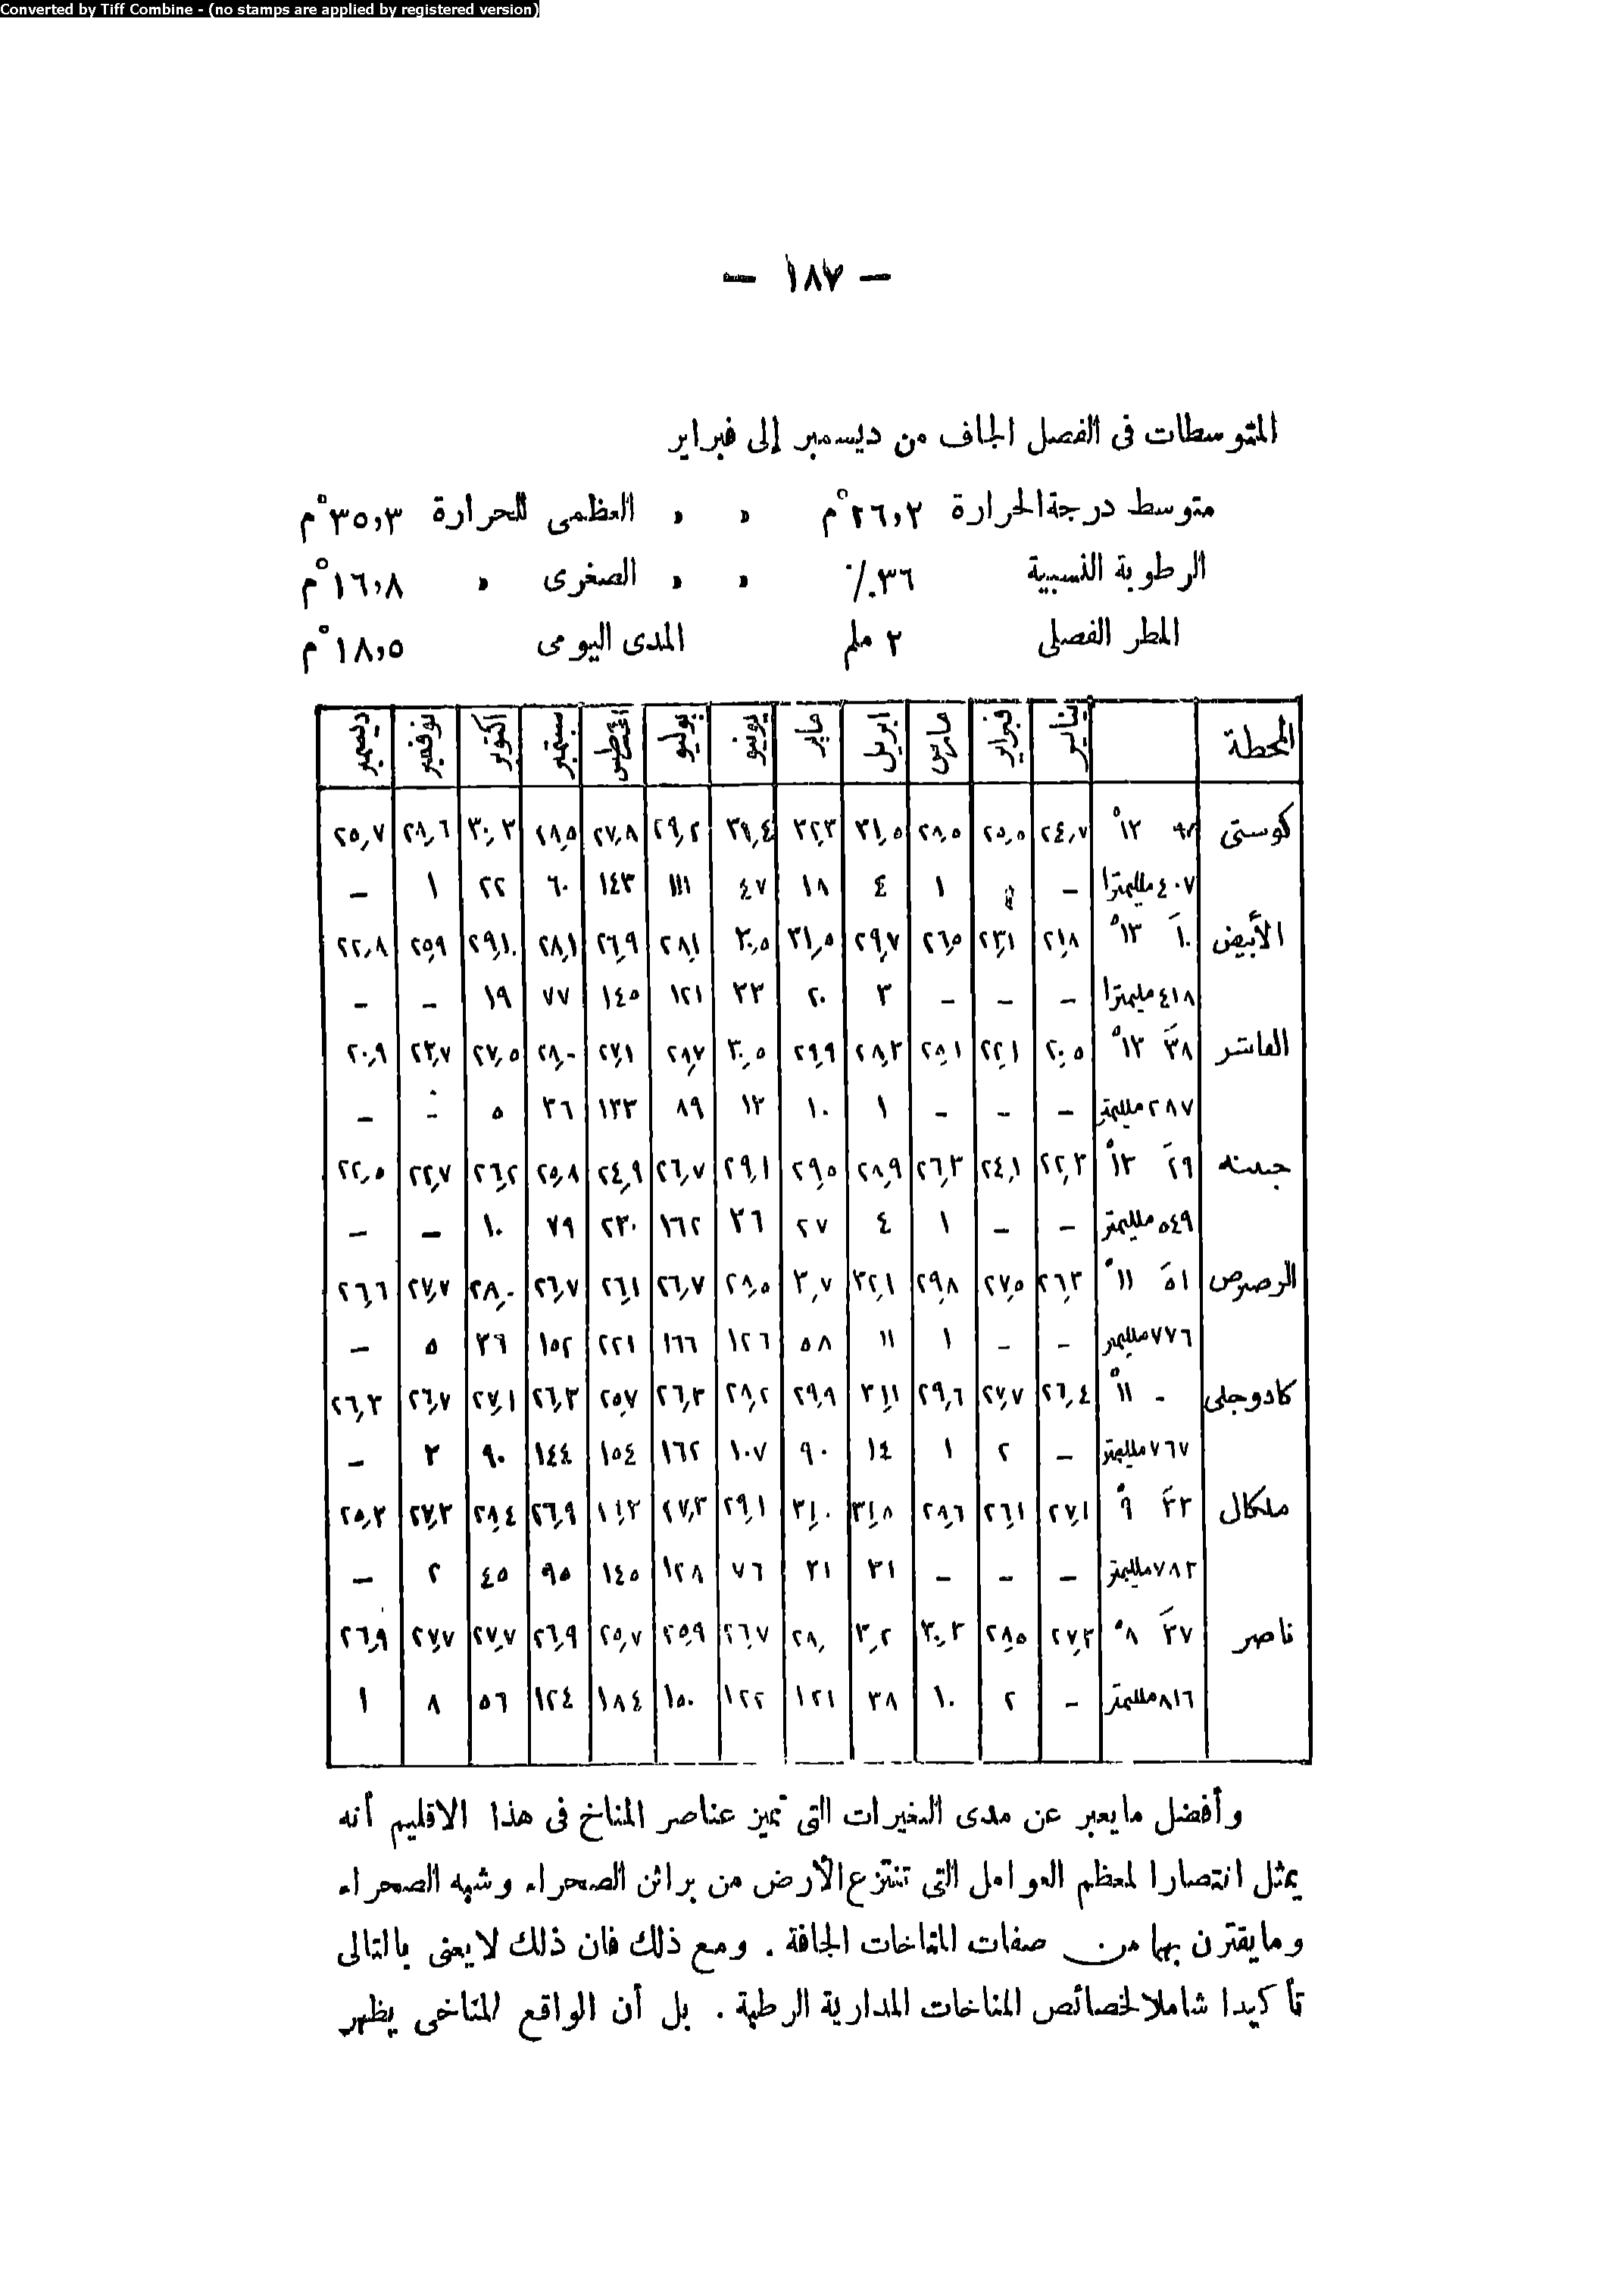 Converted by Tiff Combine - (no stamps are applied by registered version)
— ١٨٧ —
المتوسطات فى الفصل الجاف من ديسمبر إلى فبراير
متوسط درجة الحرارة ٢٦٫٢°م » » العظمى للحرارة ٣٥٫٣°م
الرطوبة النسبية ٣٦٪ » » الصغرى » ١٦٫٨°م
المطر الفصلى ٢ ملم المدى اليومى ١٨٫٥°م
المحطة يناير فبراير مارس ابريل مايو يونيو يوليو اغسطس سبتمبر اكتوبر نوفمبر ديسمبر
كوستى ١٣° ٢٤٫٧ ٢٥٫٥ ٢٨٫٥ ٣١٫٥ ٣٢٫٣ ٢٩٫٢ ٢٧٫٨ ٢٨٫٥ ٣٠٫٣ ٢٨٫٦ ٢٥٫٧
٤٠٧ ملليمترا — ١ ٤ ١٨ ٤٧ ١١١ ١٤٣ ٦٠ ٢٢ ١ —
الأبيض ١٠ ١٣° ٢١٫٨ ٢٣٫١ ٢٦٫٥ ٢٩٫٧ ٣١٫٥ ٣٠٫٥ ٢٨٫١ ٢٦٫٩ ٢٨٫١ ٢٩٫١٠ ٢٥٫٩ ٢٢٫٨
٤١٨ مليمترا — — — ٣ ٢٠ ٣٣ ١٢١ ١٤٥ ٧٧ ١٩ — —
الفاشر ٣٨ ١٣° ٢٠٫٥ ٢٢٫١ ٢٥٫١ ٢٨٫٣ ٢٩٫٩ ٣٠٫٥ ٢٨٫٧ ٢٧٫١ ٢٨٫٠ ٢٧٫٥ ٢٣٫٧ ٢٠٫٩
٢٨٧ ملليمتر — — — ١ ١٠ ١٣ ٨٩ ١٣٣ ٣٦ ٥ — —
جنينه ٢٩ ١٣° ٢٢٫٣ ٢٤٫١ ٢٦٫٣ ٢٨٫٩ ٢٩٫٥ ٢٩٫١ ٢٦٫٧ ٢٤٫٩ ٢٥٫٨ ٢٦٫٢ ٢٢٫٧ ٢٢٫٥
٥٤٩ ملليمتر — — ١ ٤ ٢٧ ٣٦ ١٦٢ ٢٣٠ ٧٩ ١٠ — —
الرصيرص ٥١ ١١° ٢٦٫٣ ٢٧٫٥ ٢٩٫٨ ٣٢٫١ ٣٫٧ ٢٨٫٥ ٢٦٫٧ ٢٦٫١ ٢٦٫٧ ٢٨٫٠ ٢٧٫٧ ٢٦٫٦
٧٧٦ ملليمتر — — ١ ١١ ٥٨ ١٢٦ ١٦٦ ٢٢١ ١٥٢ ٣٩ ٥ —
كادوجلى - ١١° ٢٦٫٤ ٢٧٫٧ ٢٩٫٦ ٣١٫١ ٢٩٫٩ ٢٨٫٢ ٢٦٫٣ ٢٥٫٧ ٢٦٫٣ ٢٧٫١ ٢٦٫٧ ٢٦٫٣
٧٦٧ ملليمتر — ٢ ١ ١٤ ٩٠ ١٠٧ ١٦٢ ١٥٤ ١٤٤ ٩٠ ٣ —
ملكال ٣٣ ٩° ٢٧٫١ ٢٦٫١ ٢٨٫٦ ٣١٫٨ ٣١٫٠ ٢٩٫١ ٢٧٫٣ ٢٦٫٩ ٢٨٫٤ ٢٧٫٣ ٢٥٫٣
٧٨٣ ملليمتر — — — ٣١ ٣١ ٧٦ ١٢٨ ١٤٥ ٩٥ ٤٥ ٢ —
ناصر ٣٧ ٨° ٢٧٫٣ ٢٨٫٥ ٣٠٫٣ ٣٫٢ ٢٨٫ ٢٦٫٧ ٢٥٫٩ ٢٥٫٧ ٢٦٫٩ ٢٧٫٧ ٢٧٫٧ ٢٦٫٩
٨١٦ ملليمتر — ٢ ١٠ ٣٨ ١٢١ ١٢٢ ١٥٠ ١٨٤ ١٢٤ ٥٦ ٨ ١
وأفضل مايعبر عن مدى التغيرات التى تميز عناصر المناخ فى هذا الاقليم أنه
يمثل انتصارا لمعظم العوامل التى تنتزع الأرض من براثن الصحراء وشبه الصحراء
ومايقترن بهما من صفات المناخات الجافة . ومع ذلك فان ذلك لايعنى بالتالى
تأكيدا شاملا لخصائص المناخات المدارية الرطبة . بل أن الواقع المناخى يظهر